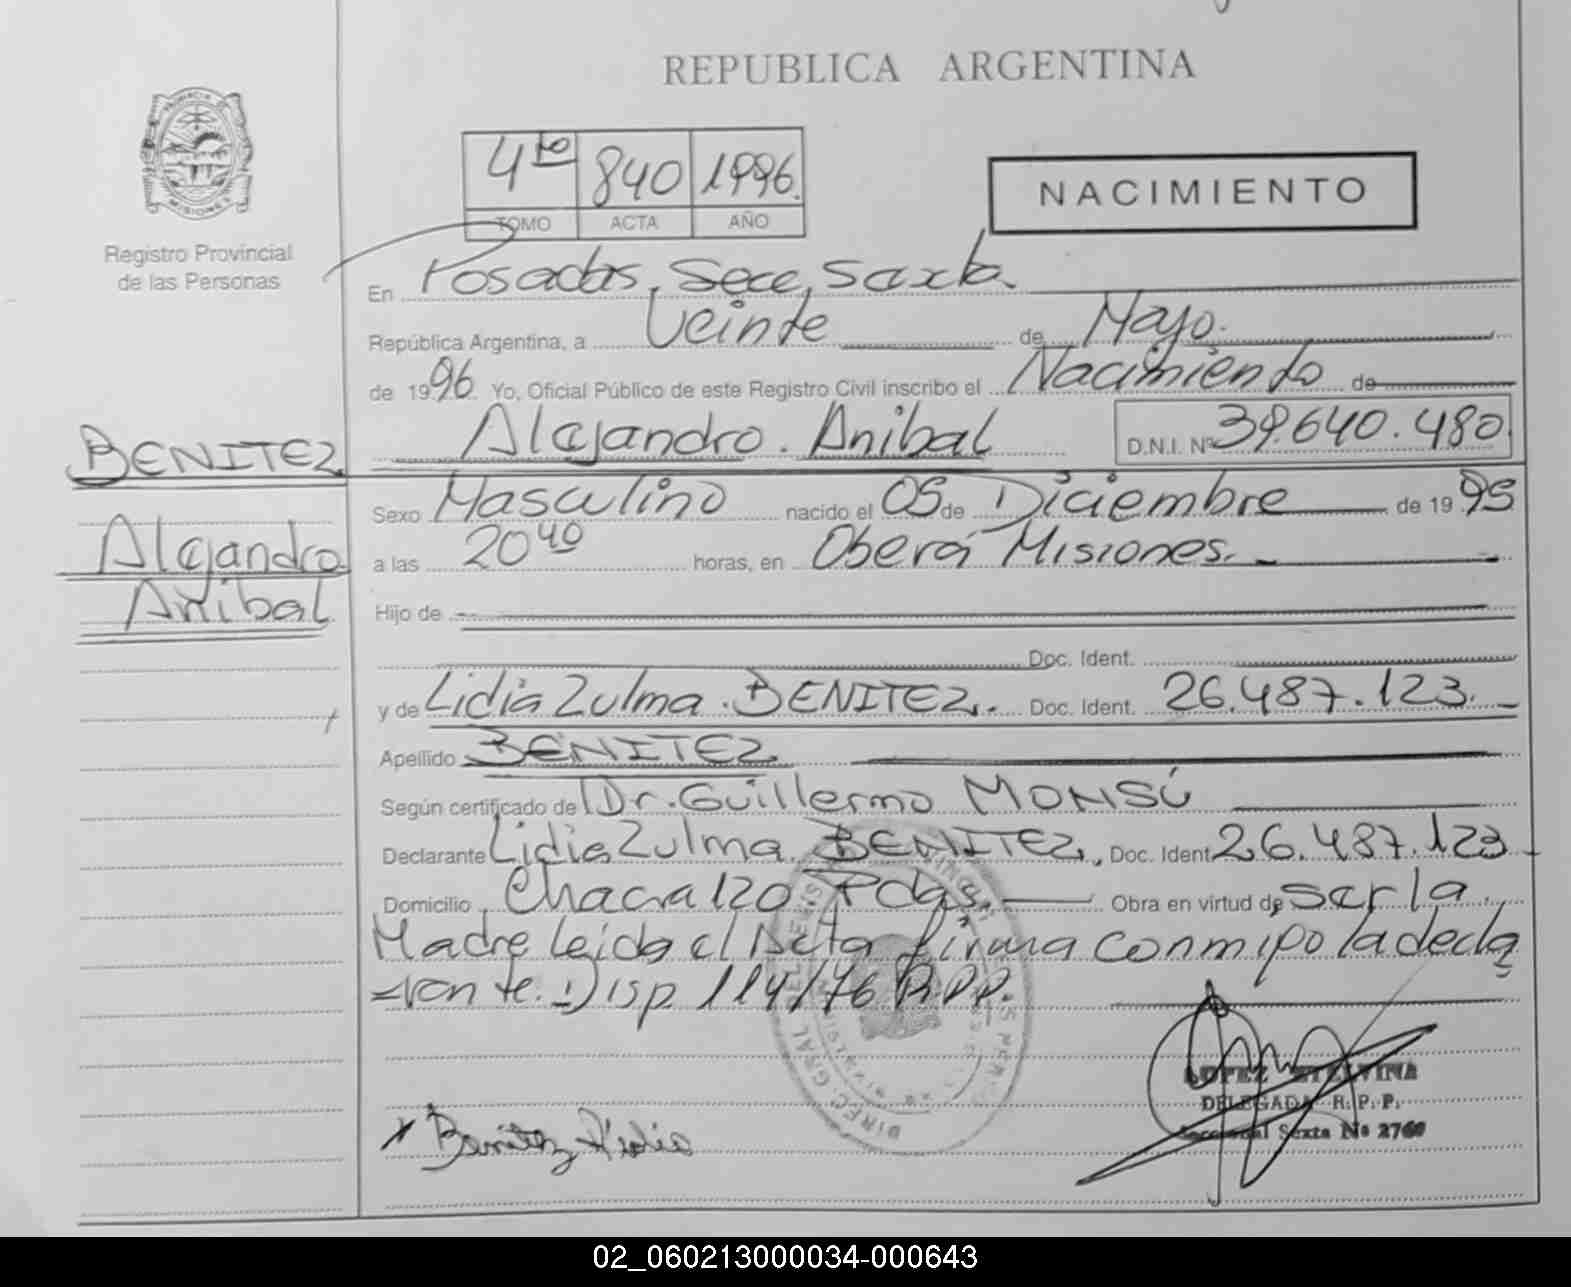 REPUBLICA ARGENTINA
PROVINCIA DE
MISIONES
Registro Provincial
de las Personas
4to 840 1996.
TOMO ACTA AÑO
NACIMIENTO
En Posadas, Secc, Sexta.
República Argentina, a Veinte de Mayo.
de 1996. Yo, Oficial Público de este Registro Civil inscribo el Nacimiento de
Alejandro. Anibal D.N.I. Nº 39.640.480
BENITEZ
Alejandro
Anibal
Sexo Masculino nacido el 05 de Diciembre de 1995
a las 20 40 horas, en Oberá Misiones.
Hijo de
Doc. Ident.
y de Lidia Zulma. BENITEZ. Doc. Ident. 26.487.123.
Apellido BENITEZ
Según certificado de Dr. Guillermo MONSÚ
Declarante Lidia Zulma BENITEZ, Doc. Ident 26.487.123
Domicilio Chacra 120 Pdas. Obra en virtud de ser la
Madre leida el Acta firma conmigo la decla
rante. Disp. 114/76 R.P.P.
LOPEZ ETELVINA
DELEGADA R. P. P.
Sexta Nº 2760
Benitez Lidia
02_060213000034-000643